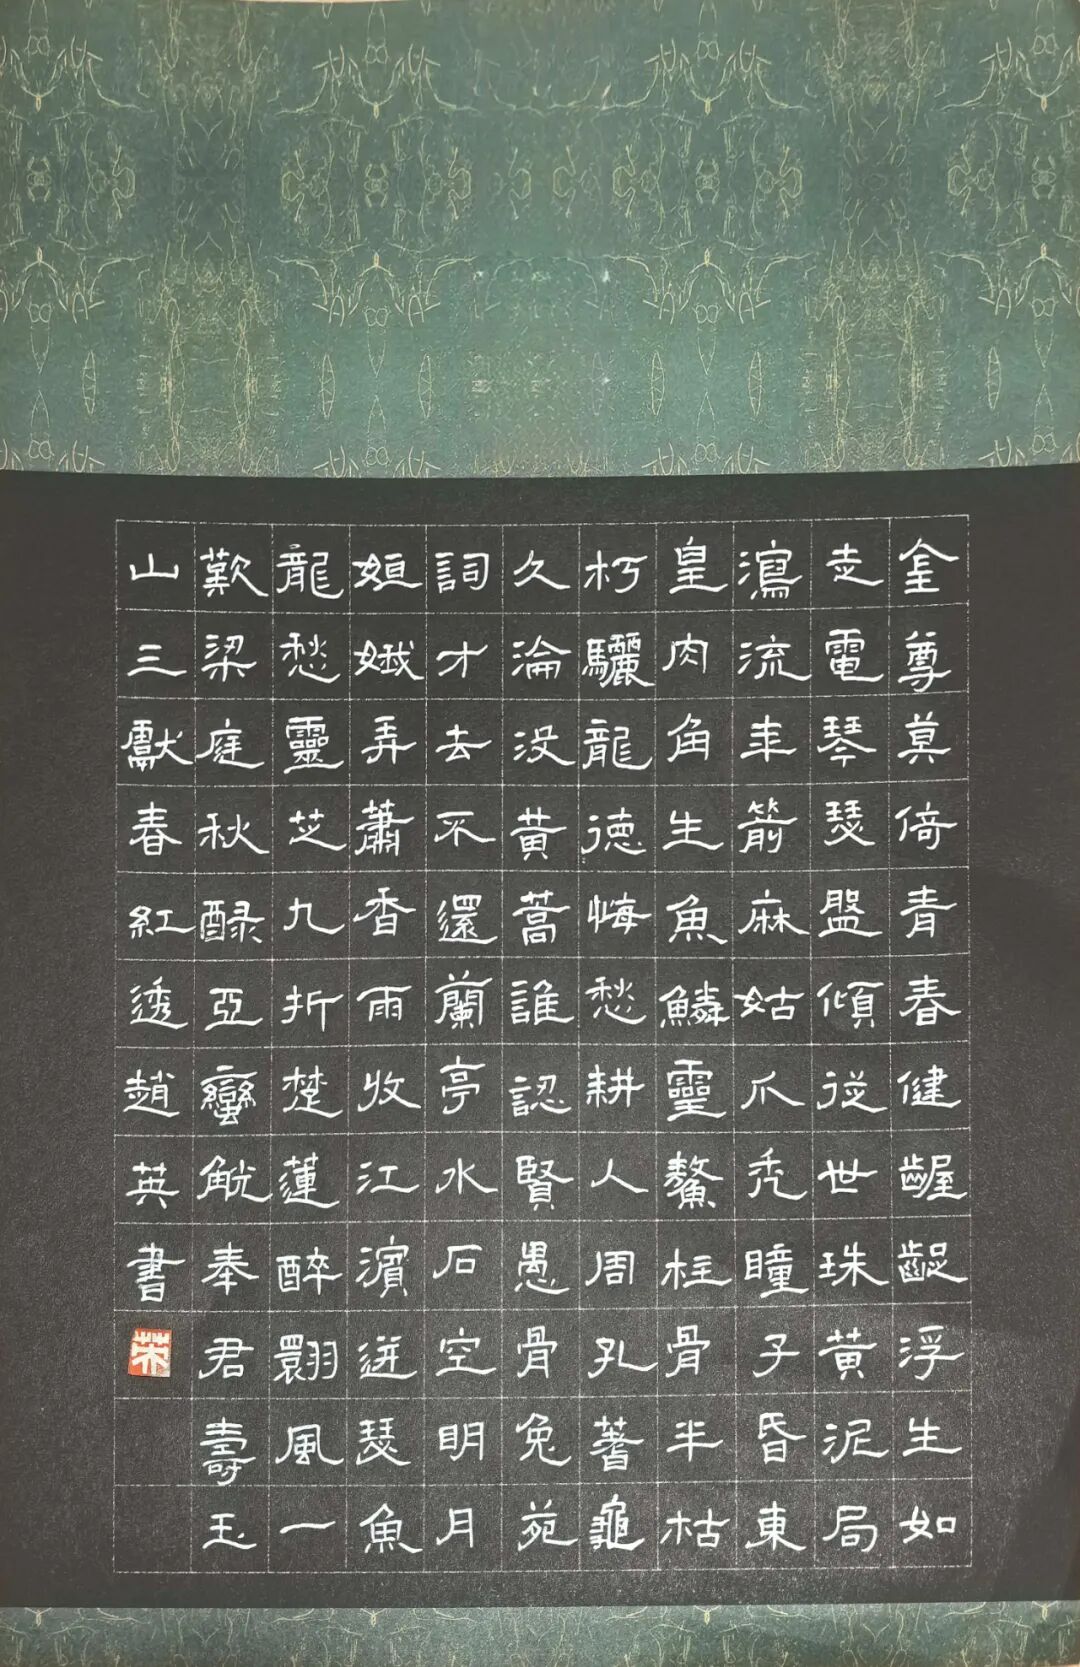 金尊莫倚青春健齷齪浮生如
走電琴瑟盤傾從世珠黃泥局
瀉流年箭麻姑爪禿瞳子昏東
皇肉角生魚鱗靈鰲柱骨半枯
朽驪龍德悔愁耕人周孔蓍龜
久淪沒黃蒿誰認賢愚骨兔苑
詞才去不還蘭亭水石空明月
姮娥弄蕭香雨收江濱迸瑟魚
龍愁靈芝九折楚蓮醉翾風一
歎梁庭秋醁亞蠻觥奉君壽玉
山三獻春紅透趙英書